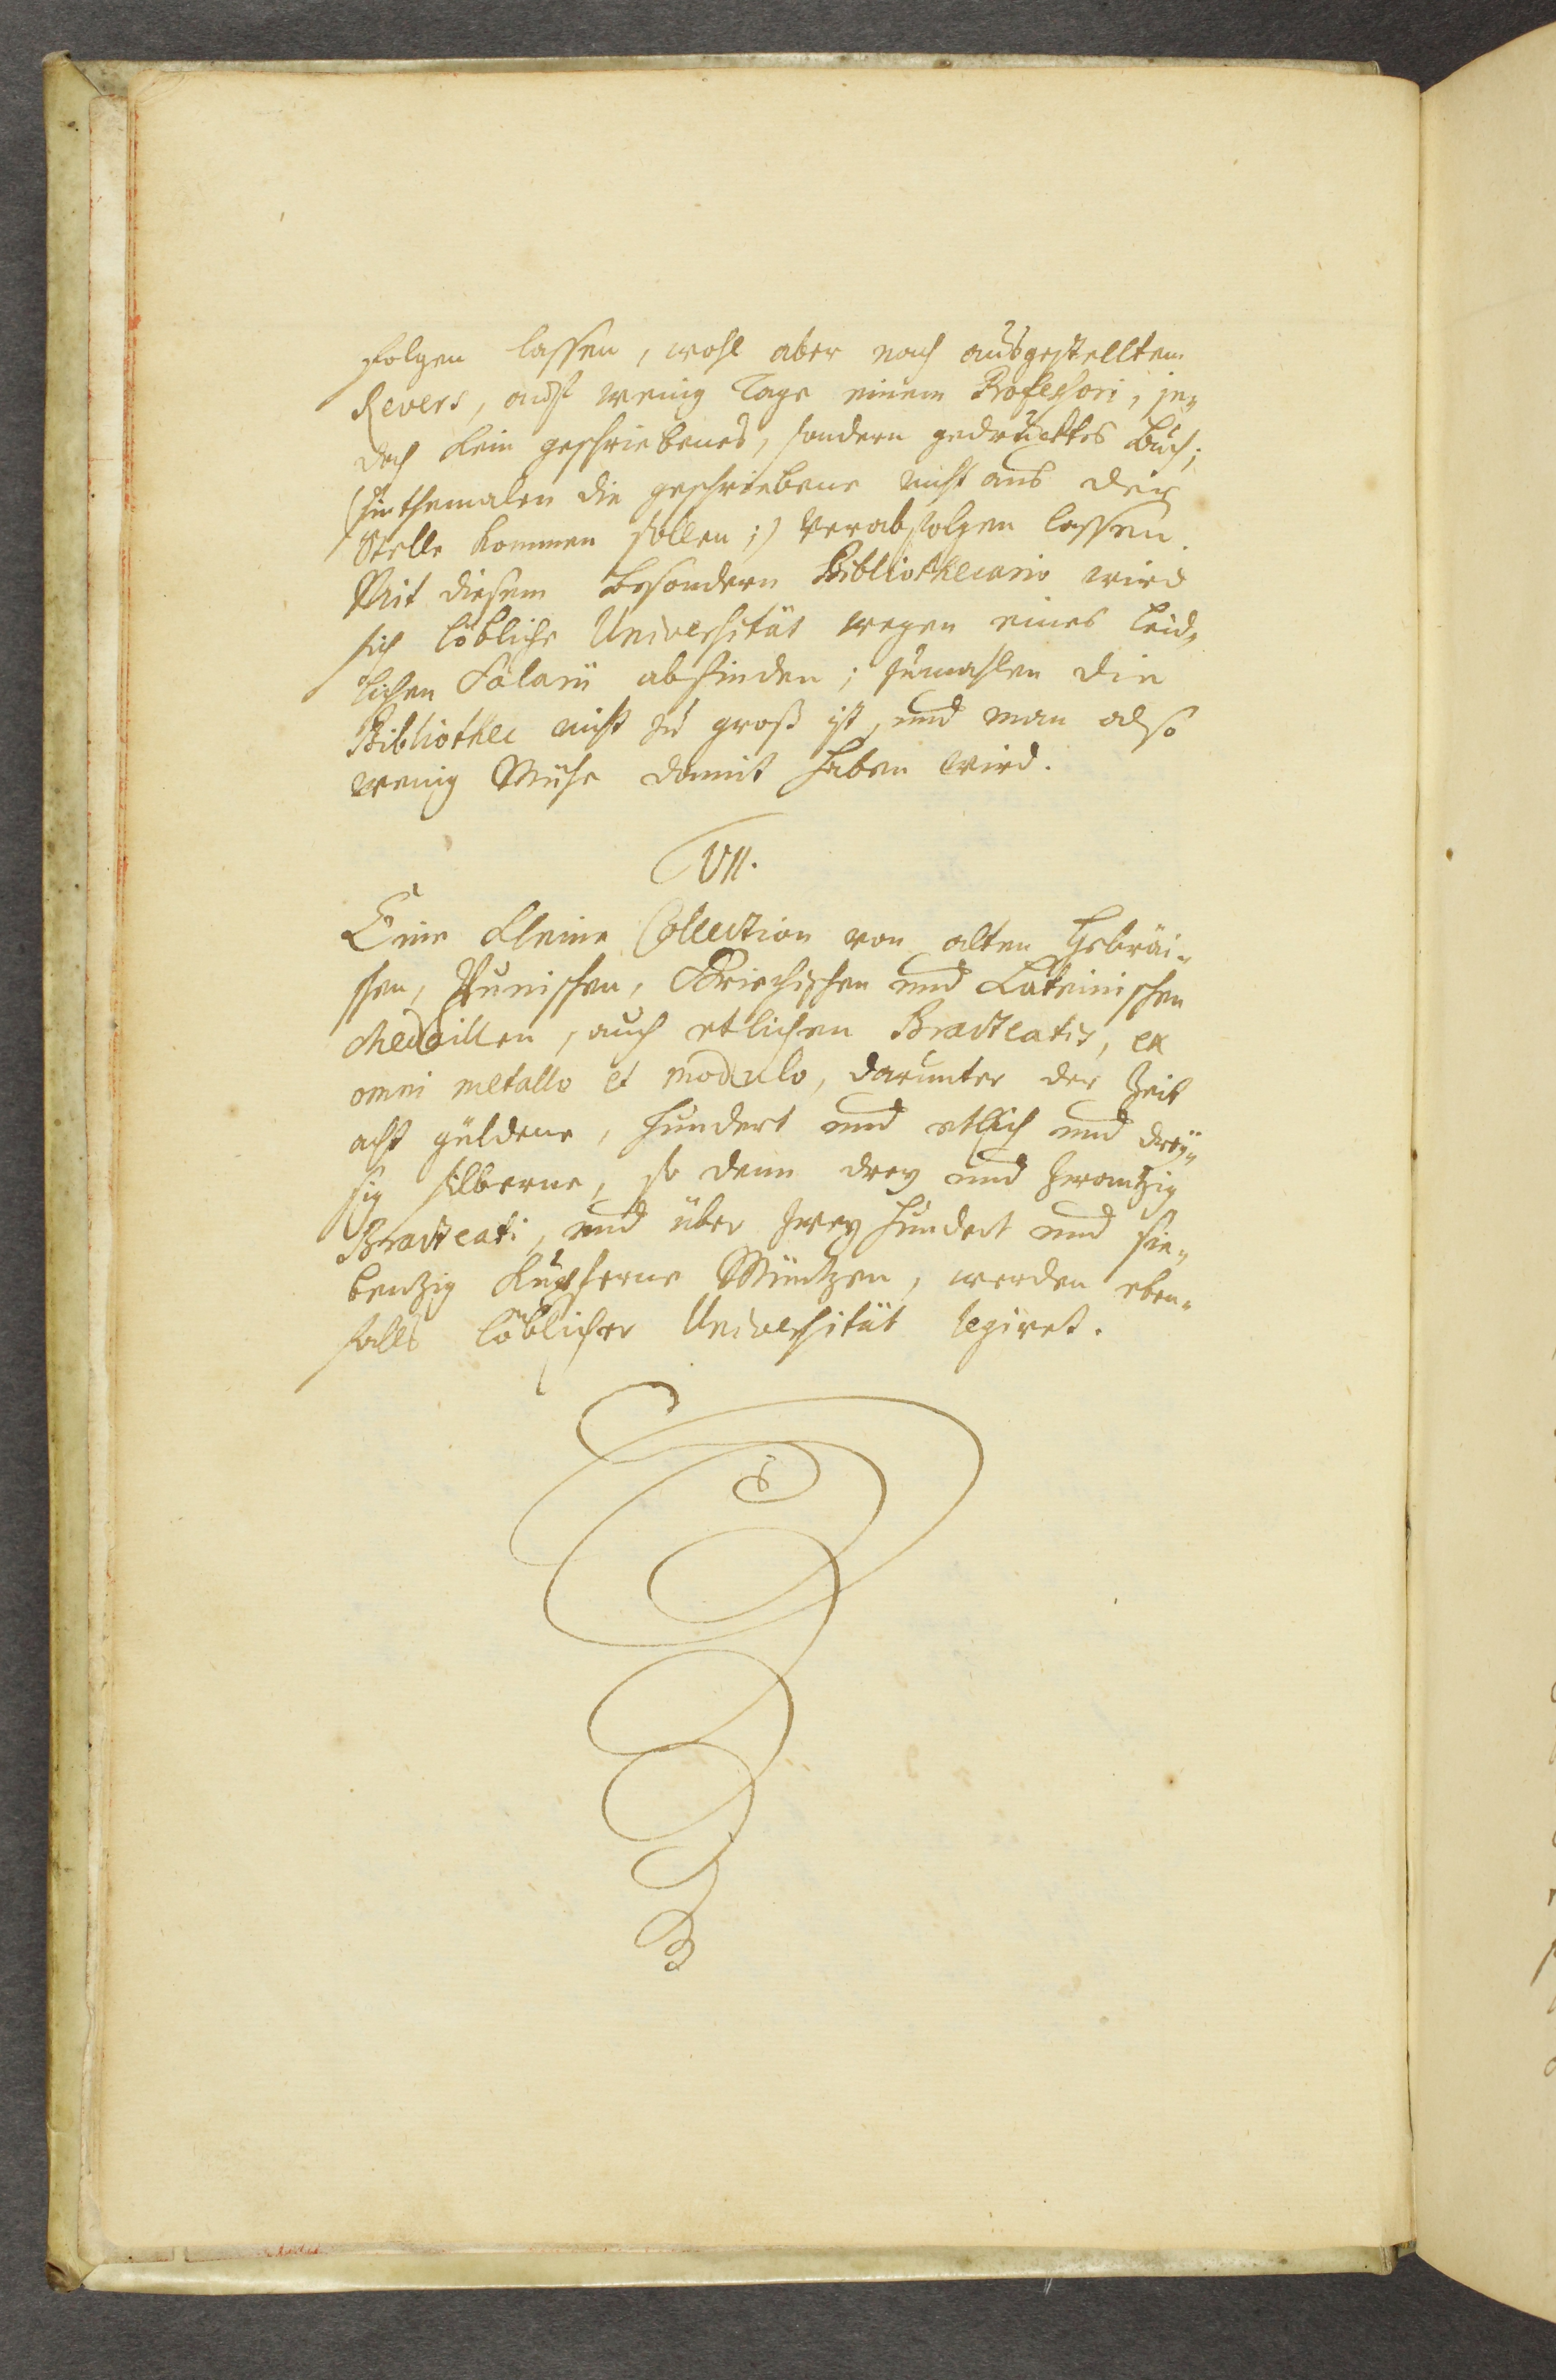 folgen lassen, wohl aber nach ausgestelltem
Revers, auff wenig Tage einem Professori, je„
doch kein geschriebenes, sondern gedrücktes Buch;
(sinthemalen die geschriebene nicht aus der
Stelle kommen sollen;) verabfolgen lassen.
Mit diesem besondern Bibliothecario wird
sich löbliche Universität wegen eines leid„
lichen Salarii abfinden; zumahlen die
Bibliothec nicht zu groß ist, und man also
wenig Mühe damit haben wird.
VII.
Eine kleine Collection von alten Hebräi„
schen, Punischen, Griechischen und Lateinischen
Medaillen, auch etlichen Bracteatis, ex
omni metallo et modulo, darunter der Zeit
acht güldene, hundert und etlich und drey„
ßig silberne, so denn drey und zwantzig
Bracteati, und über zwey hundert und sie„
bentzig kupferne Müntzen, werden eben„
falls löblicher Universität legiret.